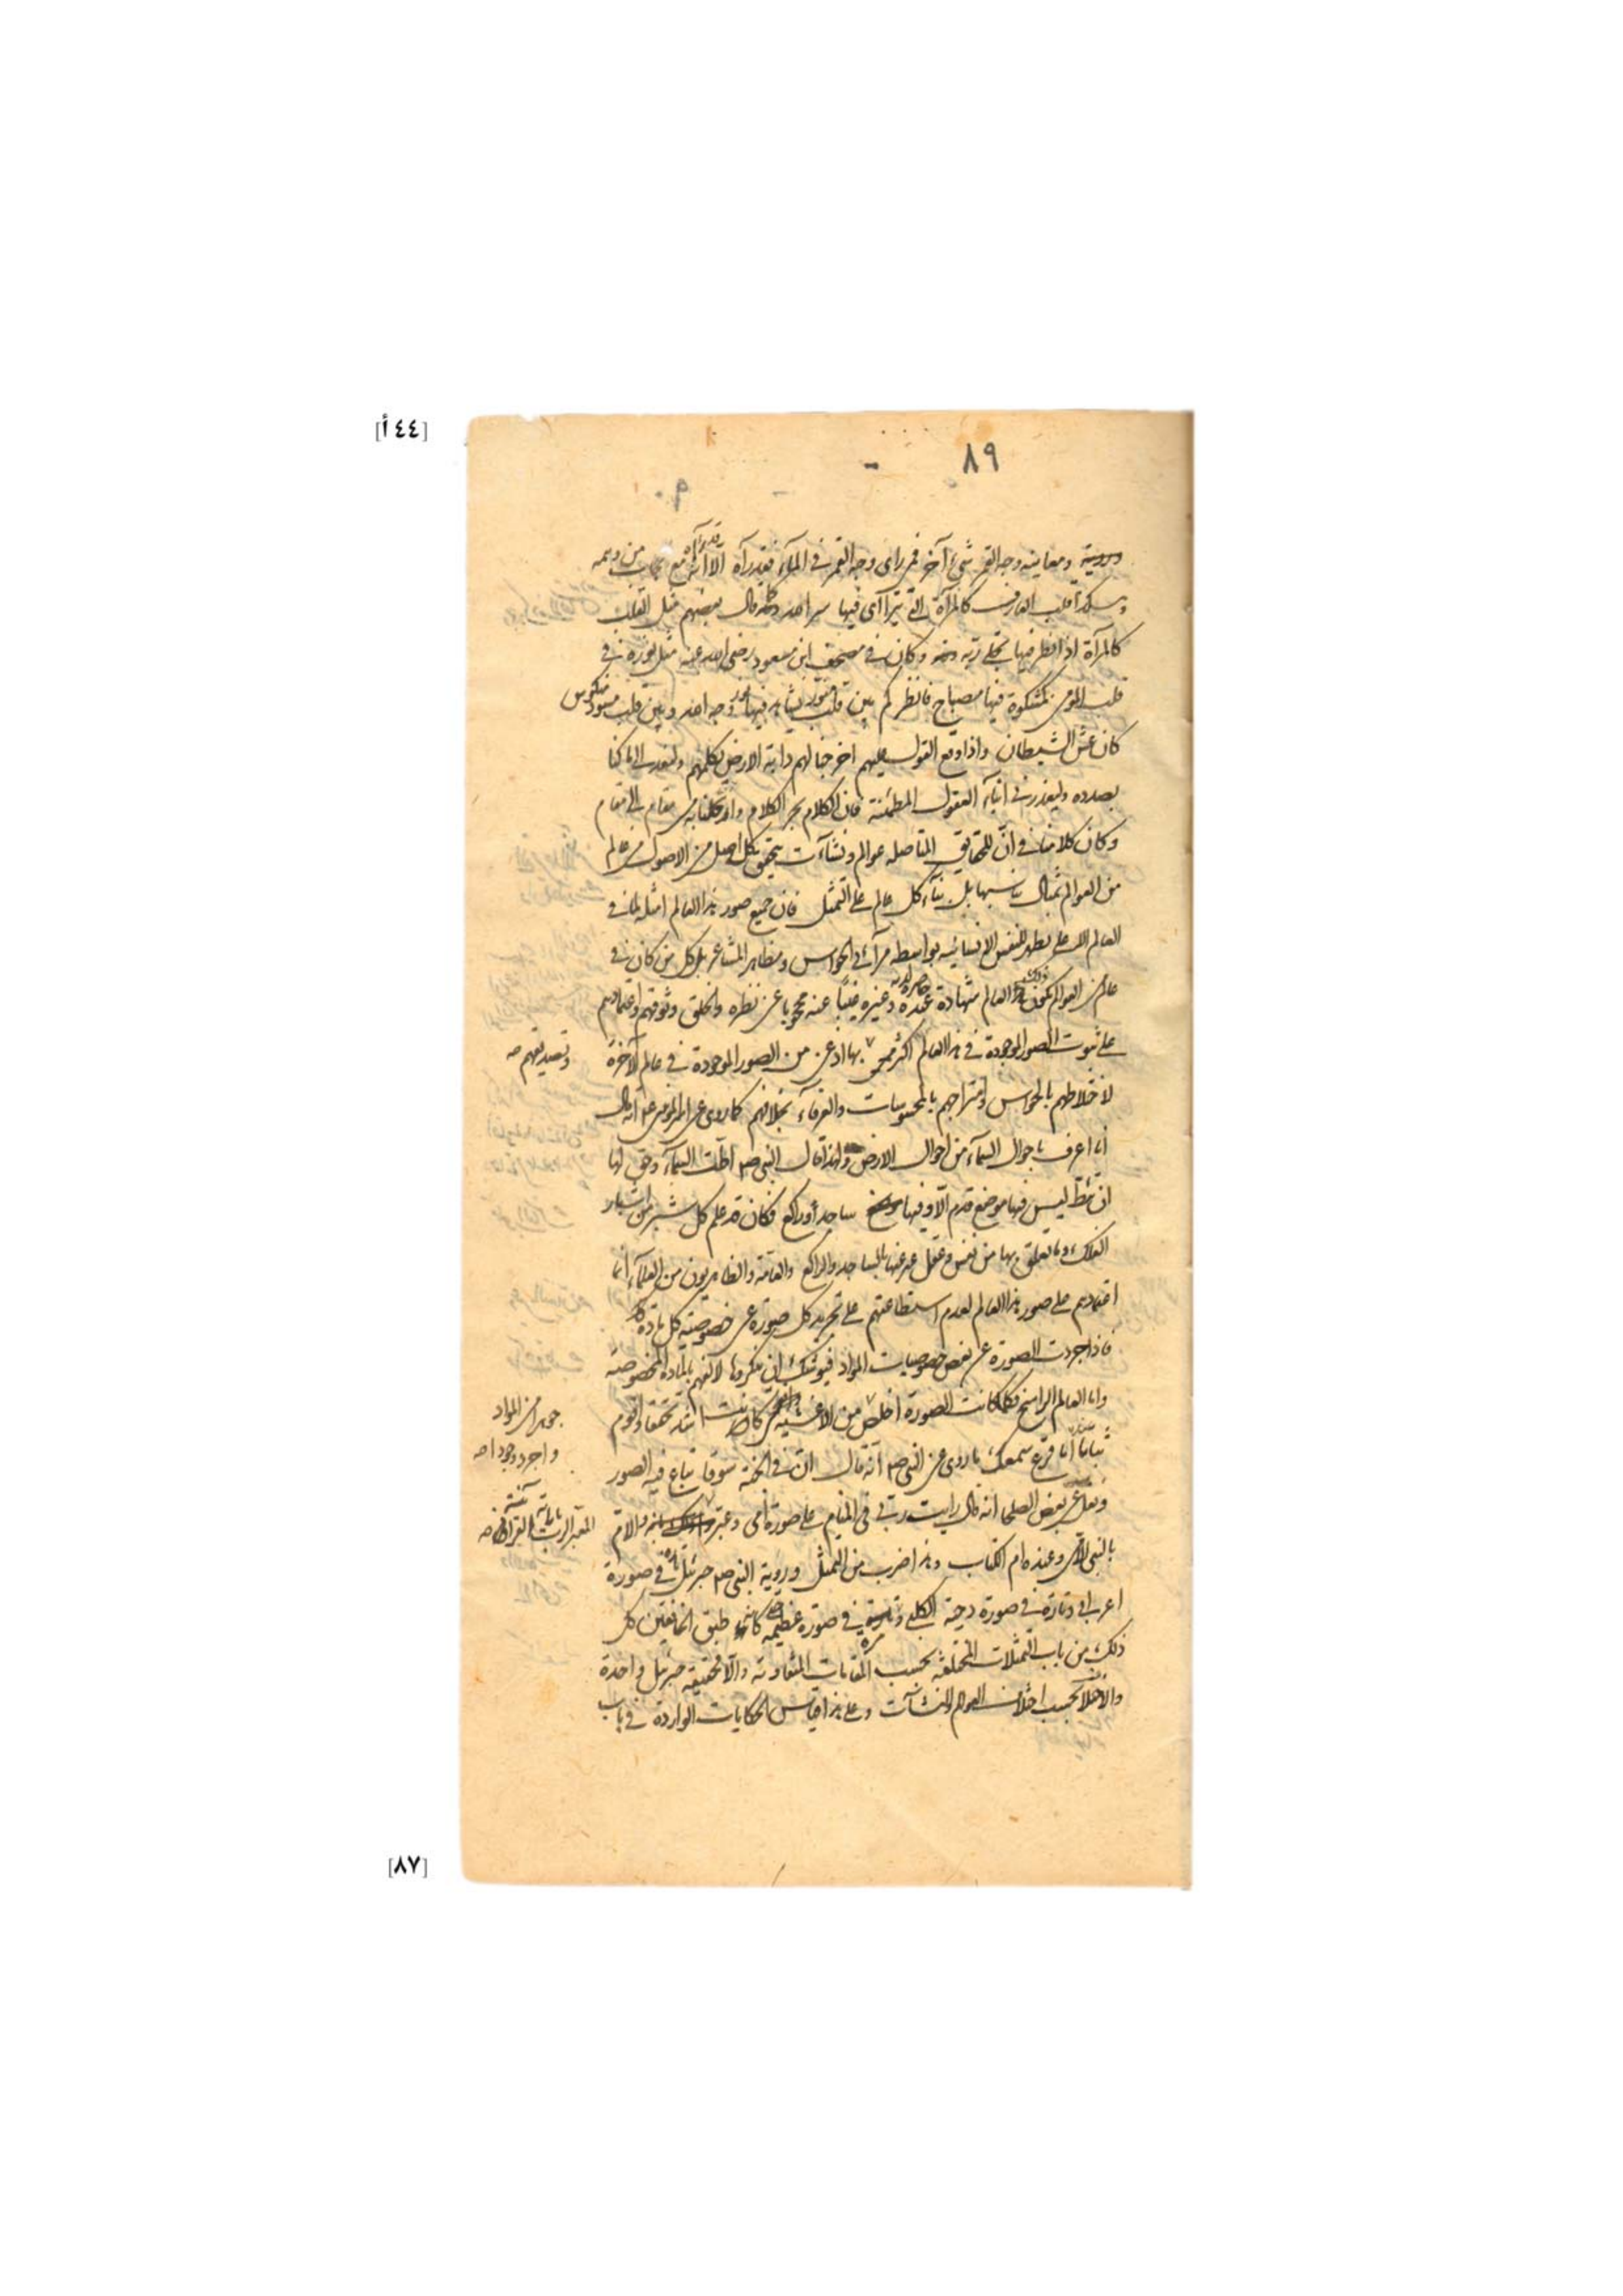 [٤٤ أ]
٨٩
ورؤية ومعاينه وجه القمر شئ آخر فمن راى وجه القمر فى المآء فقد رآه الا انه رآه مع حجاب من وهمه
وهكذا قلب العارف كالمرآة التى يتراآى فيها وقال بعضهم مثل القلب
كالمرآة اذا نظر فيها تجلى ربه وكان فى مصحف ابن مسعود رضى الله عنه مثل نوره فى
قلب المؤمن كمشكوة فيها مصباح فانظر كم بين قلب منور يشاهد فيها نور وجه الله وبين قلب مسود منكوس
كان عش الشيطان واذا وقع القول عليهم اخرجنا لهم دابة الارض تكلمهم ولنعد الى ما كنا
بصدده وليعذرنى ابنآء العقول المطمئنة فان الكلام يجر الكلام من مقام الى مقام
وكان كلامنا فى ان للحقايق المتاصله عوالم ونشاءآت يتحقق كل اصل من الاصول فى عالم
من العوالم بمثال يناسبها بل بنآء كل عالم على التمثل فان جميع صور هذا العالم امثله لما فى
العالم الاعلى يظهر للنفس الانسانيه بواسطه مرآئى الحواس ومظاهر المشاعر بل كل من كان فى
عالم من العوالم يكون ذلك العالم شهادة عنده حاضرة لديه وغيره غيبًا عنه محجوبا عن نظره والخلق وثوقهم واعتمادهم
على ثبوت الصور الموجودة فى هذا العالم اكثر بها اذعن من الصور الموجودة فى عالم الآخرة
وتصديقهم صح
لاختلاطهم بالحواس وامتزاجهم بالمحسوسات والعرفآء بخلافهم كما روى عن امير المؤمنين ع انه قال
انا اعرف باحوال السمآء من احوال الارض ولهذا قال النبى ص اطت السمآء وحق لها
ان تئط ليس فيها موضع قدم الا وفيها ساجد أو راكع فكان قد علم كل شبر من اشبار
الفلك وما تعلق بها من نفس وعقل عبر عنها بالساجد والراكع والعامة والظاهريون من العلمآء انما
اعتمادهم على صور هذا العالم لعدم استطاعتهم على تجريد كل صورة عن خصوصية كل مادة
فاذا جردت الصورة عن بعض خصوصيات المواد فيوشك ان ينكروها لالفهم بالمادة المخصوصة
واما العالم الراسخ فكلما كانت الصورة اخلص من الاغشيه كانت اشد تحققا واقوم
جوهرا من المواد
واجرد وجودا صح
ثباتا اما قرع سمعك ما روى عن النبى ص انه قال ان فى الجنة سوقا تباع فيه الصور
ونقل عن بعض الصلحا انه قال رايت ربى فى المنام على صورة امى وعبر والام
بالنبى الامى وعنده ام الكتاب وهذا ضرب من التمثل ورؤية النبى ص جبرئيل تارة فى صورة
اعرابى وتارة فى صورة دحية الكلبى ومرة فى صورة عظيمه كانه طبق الخافقين كل
ذلك من باب التمثلات المختلفة بحسب المقامات المتفاوتة والا فحقيقة جبرئيل واحدة
والاختلاف بحسب اختلاف العوالم والنشاءآت وعلى هذا قياس الحكايات الواردة فى باب
[٨٧]